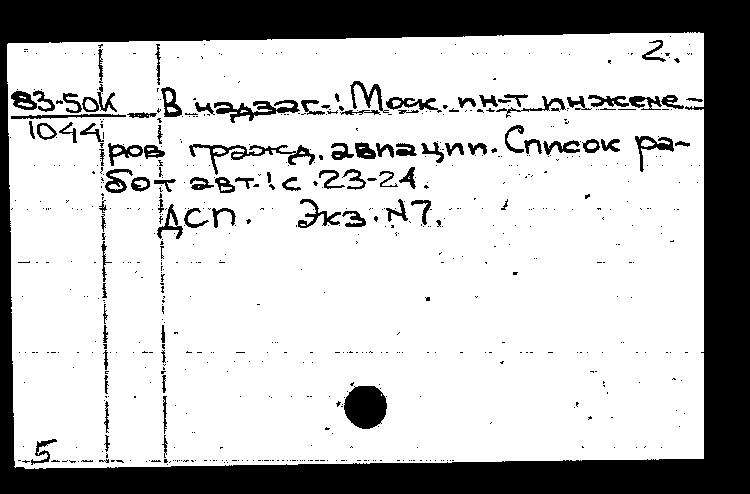 2.
83-50К В надзаг.: Моск. ин-т инжене-
1044
ров гражд. авиации. Список ра-
бот авт.: с. 23-24.
ДСП. Экз. №7.
5